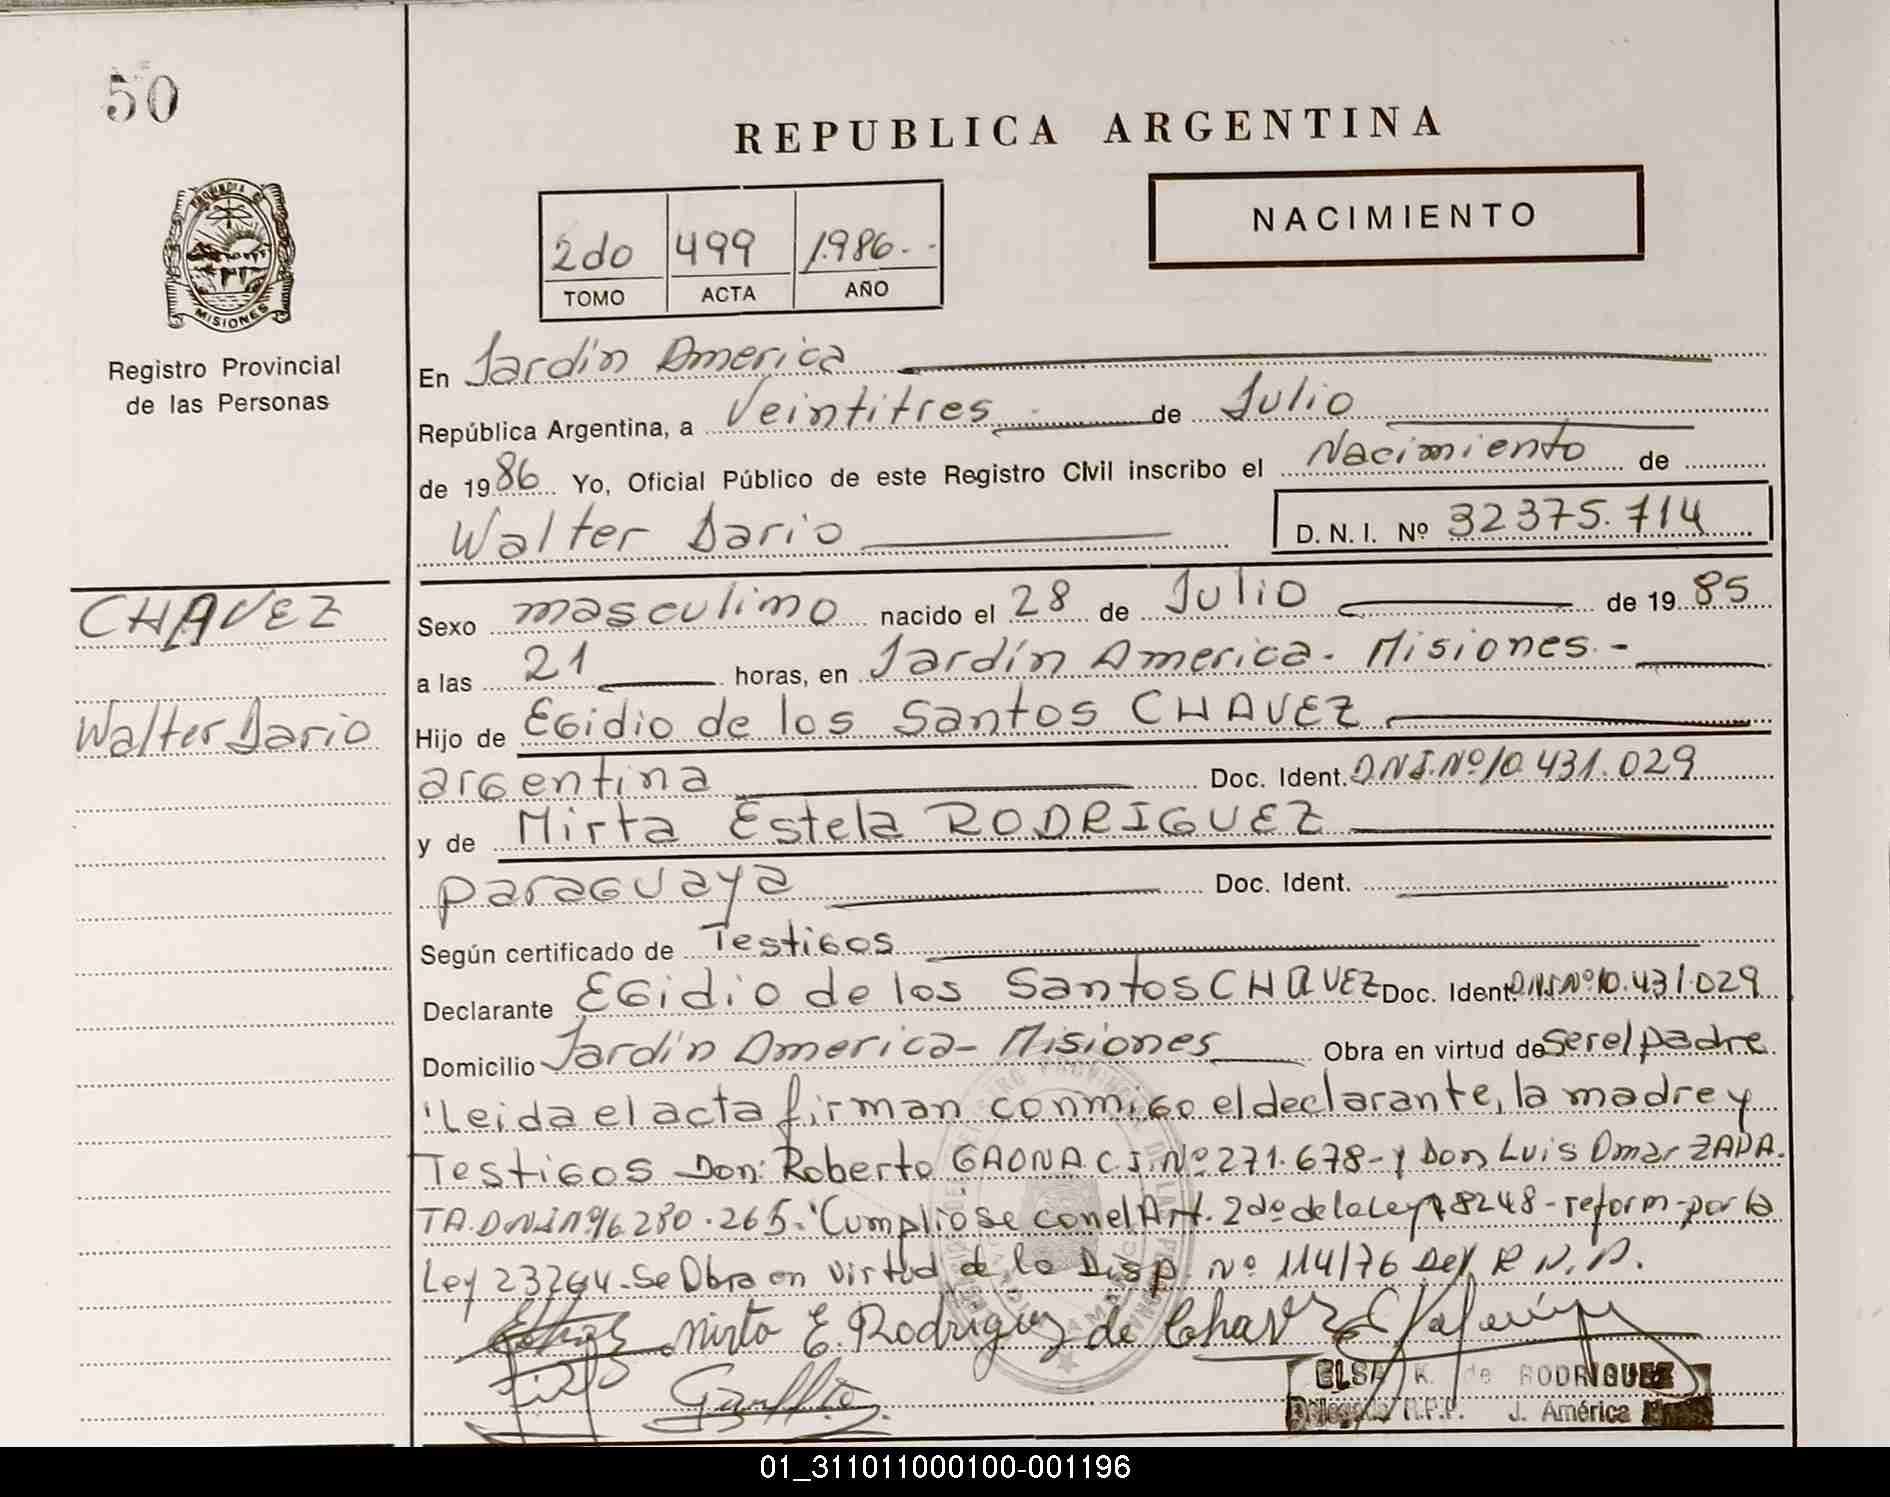 50
REPUBLICA ARGENTINA
NACIMIENTO
2do 499 1.986.-
TOMO ACTA AÑO
PROVINCIA DE
MISIONES
Registro Provincial
de las Personas
En Jardín America
República Argentina, a Veintitres de Julio
de 1986 Yo, Oficial Público de este Registro Civil inscribo el Nacimiento de
Walter Dario D. N. I. Nº 32375.714
CHAVEZ
Walter Dario
Sexo masculino nacido el 28 de Julio de 1985
a las 21 horas, en Jardín America - Misiones.-
Hijo de EGidio de los Santos CHAVEZ
argentina Doc. Ident. DNI.Nº10.431.029
y de Mirta Estela RODRIGUEZ
paraguaya Doc. Ident.
Según certificado de Testigos
Declarante EGidio de los Santos CHAVEZ Doc. Ident. DNI Nº10.431.029
Domicilio Jardín America - Misiones Obra en virtud de ser el padre
"Leida el acta firman conmigo el declarante, la madre y
Testigos Don: Roberto GAONA C.I.Nº271.678-y Don Luis Omar ZAPA.
TA.DNI Nº16.280.265."Cumpliose con el Art. 2do de la Ley 18248-reform-por la
Ley 23264. Se Obra en virtud de la Disp. Nº 114/76 Del R.N.P.
Mirta E. Rodriguez de Chavez
ELSA K. de RODRIGUEZ
Delegada R.P.P. J. América
01_311011000100-001196